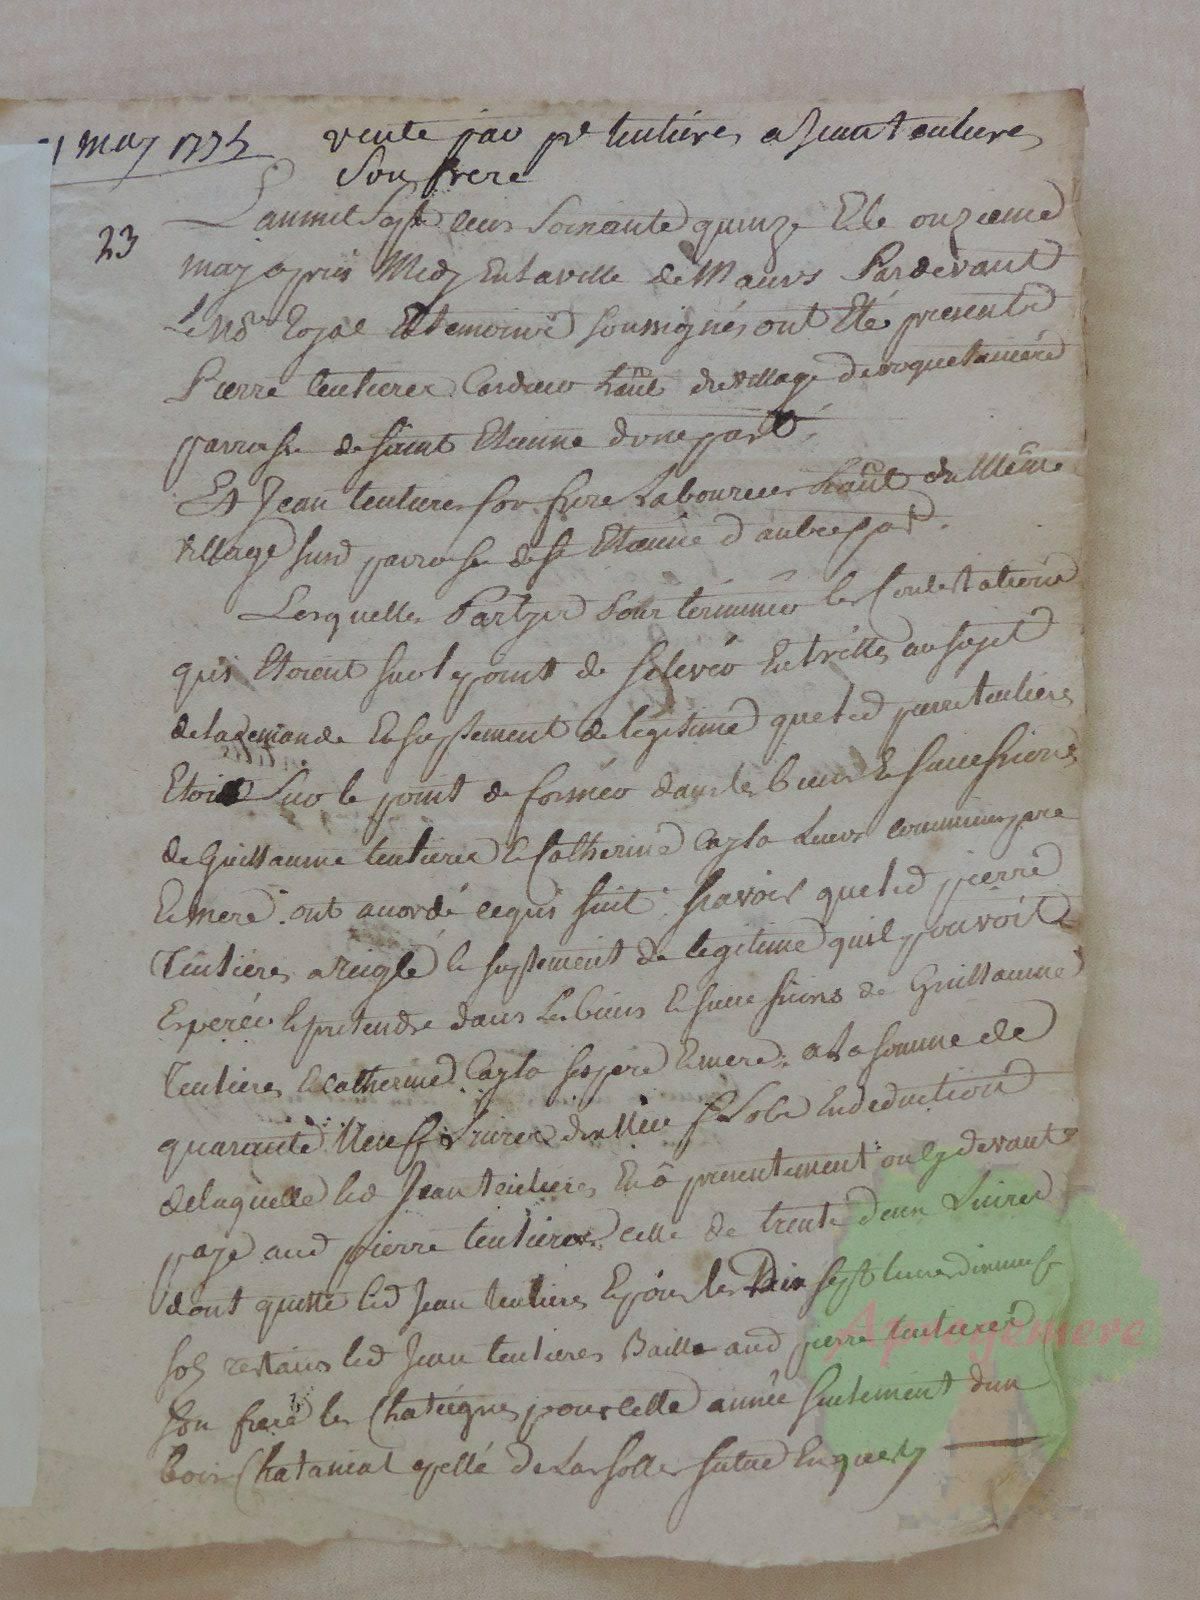 11 may 1775 vente par pe teulieres a Jean teulieres
son frere
23
L'an mil sept cens soixante quinze & le onzieme
may apres midy en la ville de Maurs Pardevant
le Nore Royal et temoins soussignés ont Eté presents
Pierre teulieres habt du village de roquetaniere
parroisse de saint Etienne d'une part
Et Jean teulieres son frere Laboureur habt du Même
village susd parroisse de st Etienne d'autre part.
Lesquelles Partyes Pour terminer les Contestations
quis Etoient sur le point de s'elever Entr'elles au sujet
de la demande En suplement de legitime que led pierre teulieres
Etoit sur le point de former dans les biens & successions
de Guillaume teulieres & Catherine Cayla Leurs communs pere
& mere ont acordé ce quis suit. scavoir que led pierre
Teulieres a reiglé le suplement de legitime qu'il pouvoit
Esperer & pretendre dans les biens & successions de Guillaume
Teulieres & Catherine Cayla ses pere & mere a la somme de
quarante Neuf Livres dix Neuf sols En deduction
de laquelle led Jean teulieres En a presentement ou cy devant
payé aud pierre teulieres celle de trente deux Livres
dont quitte led Jean teulieres & pour les Dix sept livres dix neuf
sols restans led Jean teulieres Baille aud pierre teulieres
son frere les Chateignes pour cette année seulement d'un
bois Chatanial apellé de Las solles situé Enques
Aprogemere